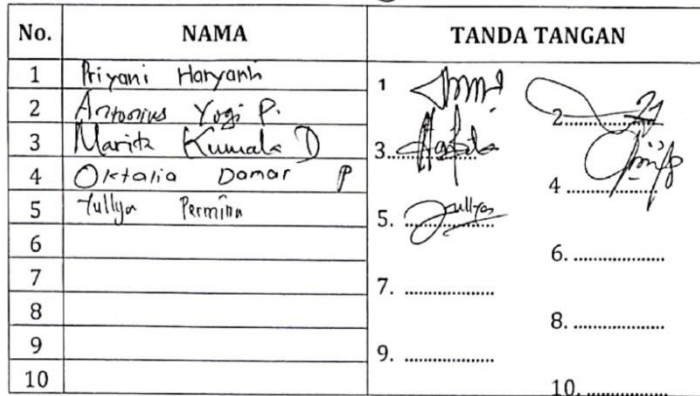 No. NAMA TANDA TANGAN
1 Priyani Haryanti 1
2 Antonius Yogi P. 2..................
3 Marita Kumala D 3..................
4 Oktalia Damar P 4..................
5 Yullya Permina 5. .................. Yullya
6 6. ..................
7 7. ..................
8 8. ..................
9 9. ..................
10 10. ..................